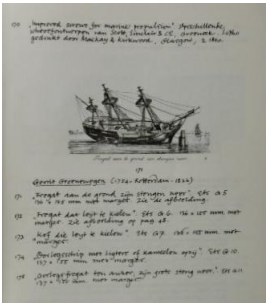 170 "Improved screws for marine propulsion".
scheepsontwerpen van Scott, Sinclair & Co, Greenock. Litho
gedrukt door Mackay & Kirkwood, Glasgow,
Fregat aan de grond zijn stengen neer
171
Gerrit Groenewegen (1754 - Rotterdam - 1826)
171 "Fregat aan de grond zijn stengen neer". Ets G 5
155 mm met marges. Zie de afbeelding.
172 "Fregat dat legt te kielen". Ets G 6. 136 x 155 mm met
marges. Zie afbeelding op pag 48.
173 "Kof die legt te kielen". Ets G 7. 136 x 155 mm met
marges.
174 "Oorlogsschip met ligters of kameelen opzij". Ets G 10.
137 x 155 mm met marges.
175 "Oorlogsfregat ten anker, zijn grote steng neer". Ets G 11
137 x 155 mm met marges.